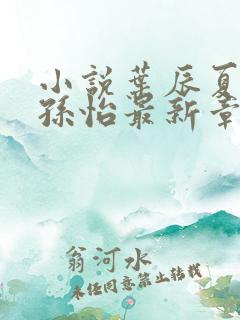 小說葉辰夏
孫怡最新章
翁河水
未经同意禁止转载